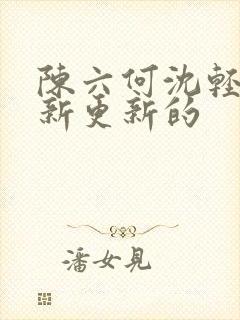 陳六何沈輕
新更新的
潘女見